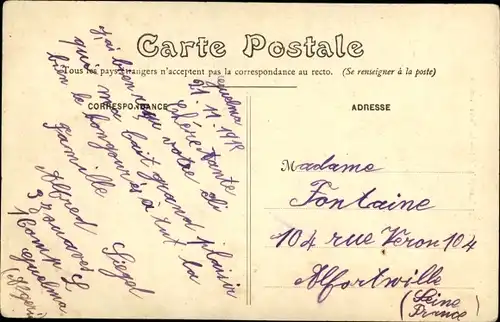 Carte Postale
Tous les pays étrangers n'acceptent pas la correspondance au recto. (Se renseigner à la poste)
CORRESPONDANCE
ADRESSE
guelma
21.11.1918
Chère tante
J'ai bien reçu votre
qui ma fait grand plaisir
bien le bongour à tut la
Famille
Alfred Siegel
3 zouaves
16 comp
guelma
(Algeri
Madame
Fontaine
104 rue Véron 104
Alfortville
(Seine
France)